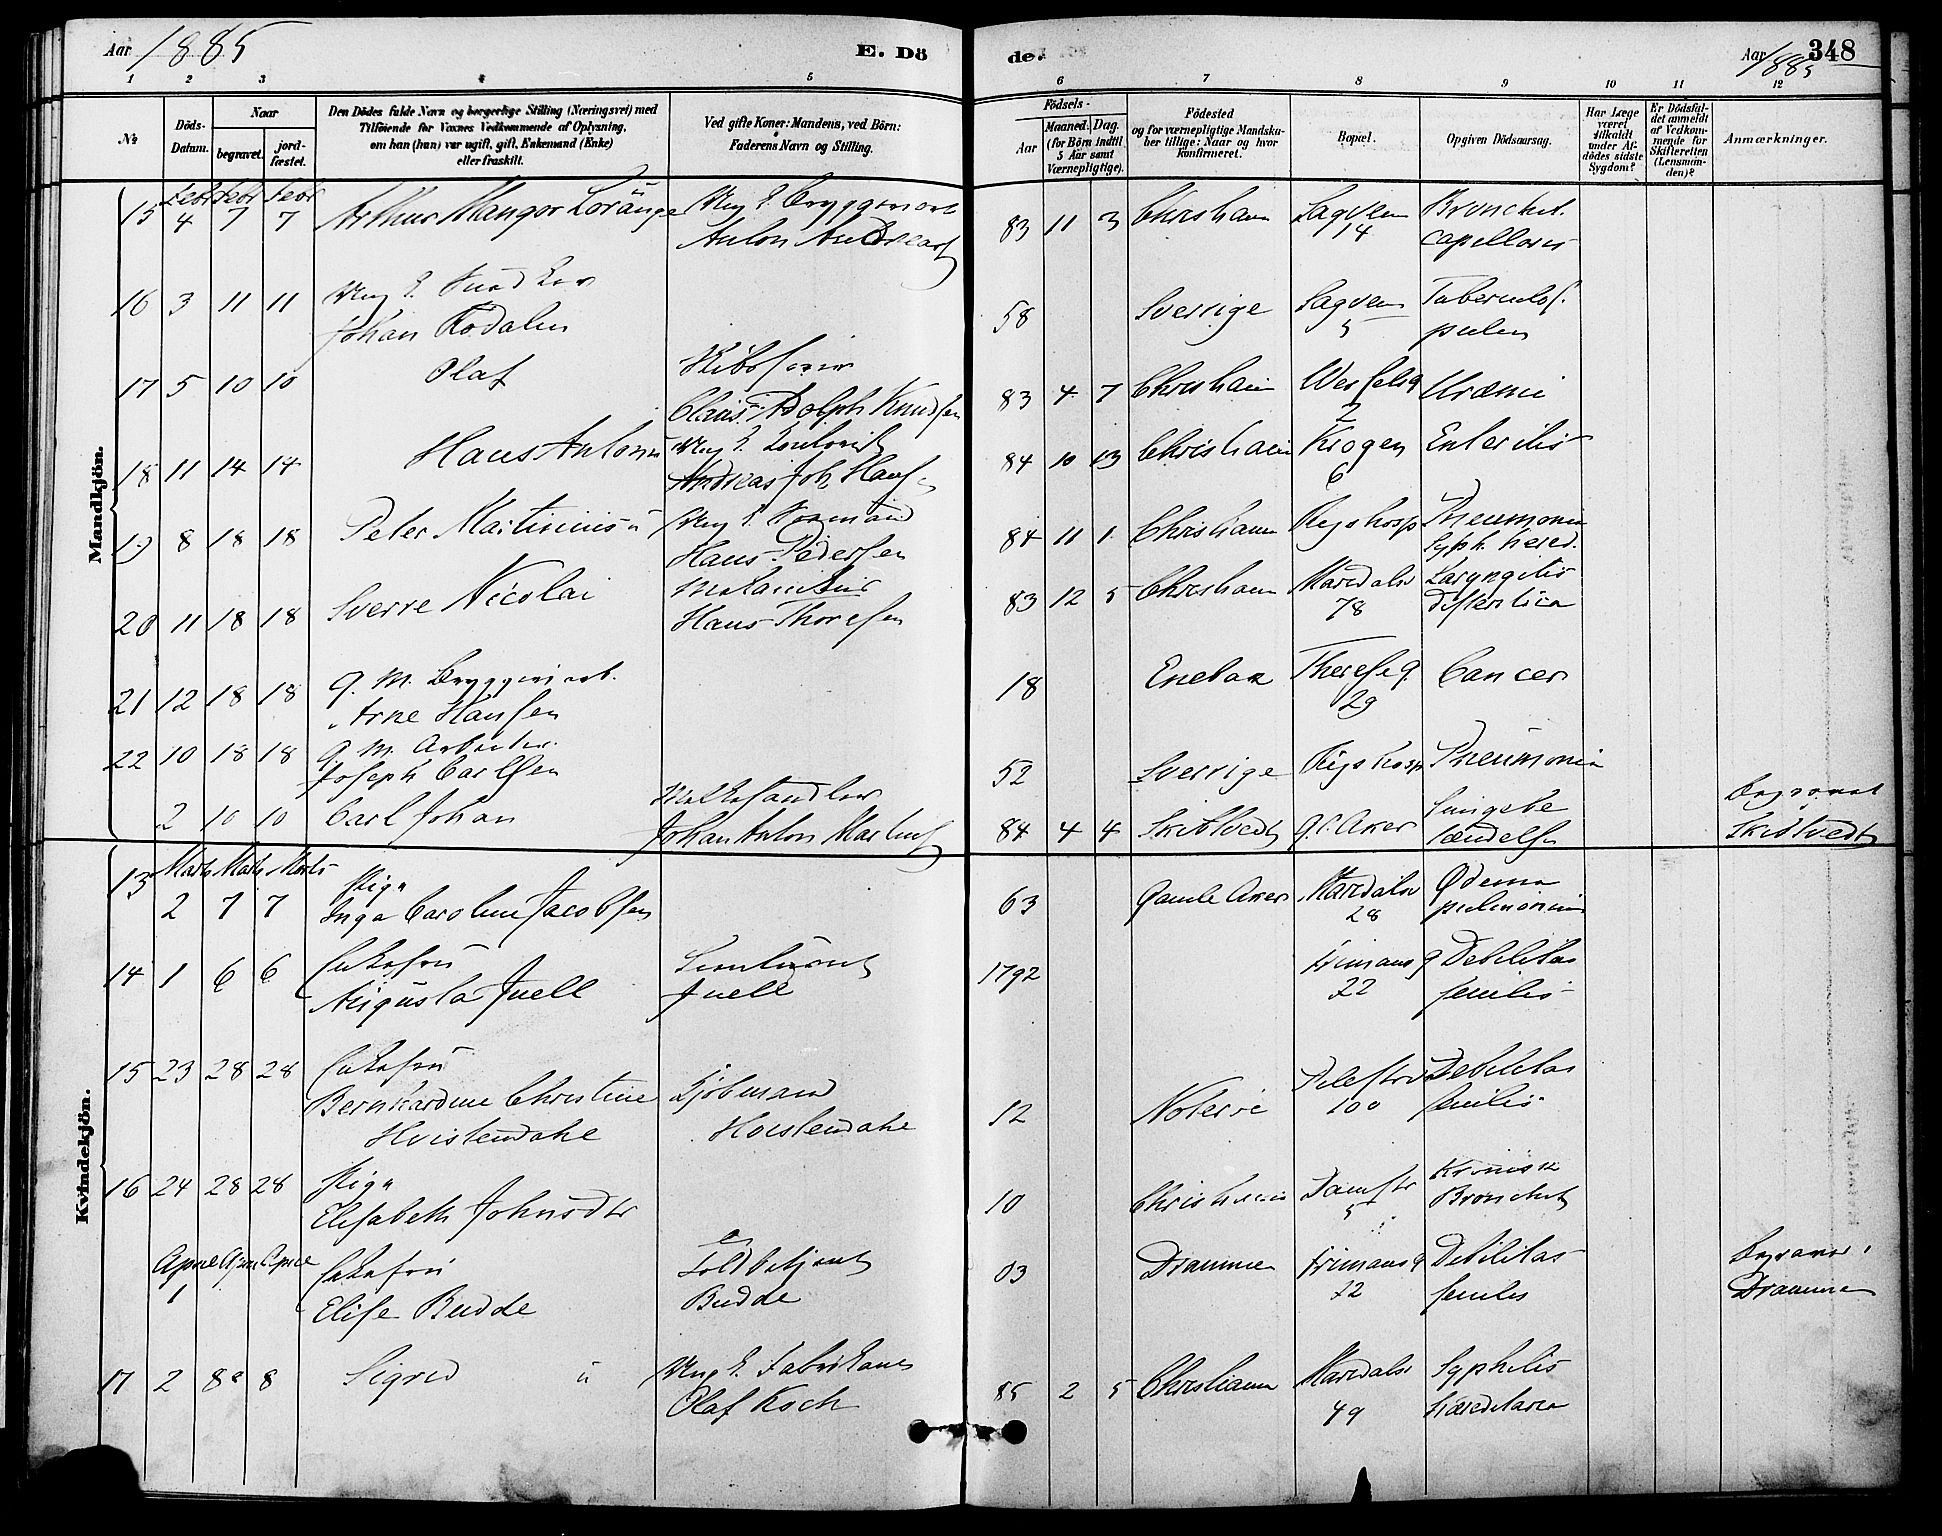 Aar 1885
E. Dö
de.
Aar 1885
348
1 2 3 4 5 6 7 8 9 10 11 12
No
Döds-Datum.
Naar
begravet.
jord-fæstet.
Den Dödes fulde Navn og borgerlige Stilling (Næringsvei) med
Tilföiende for Voxnes Vedkommende af Oplysning,
om han (hun) var ugift, gift, Enkemand (Enke)
eller fraskilt.
Ved gifte Koner: Mandens, ved Börn:
Faderens Navn og Stilling.
Födsels-
Aar
Maaned. Dag.
(for Börn indtil
5 Aar samt
Værnepligtige).
Födested
og for værnepligtige Mandska-
ber tillige: Naar og hvor
konfirmeret.
Bopæl.
Opgiven Dödsaarsag.
Har Læge
været
tilkaldt
under Af-
dödes sidste
Sygdom?
Er Dödsfal-
det anmeldt
af Vedkom-
mende for
Skifteretten
(Lensman-
den)?
Anmærkninger.
Mandkjön.
Febr Febr Febr
15 4 7 7 Arthur Mangor Lorange
Anton Andreas
83 11 3 Christiania Sagveien 14 Bronchit. capillaris
16 3 11 11
Johan Rodalen
58 Sverrige Sagveien 5 Tuberculos. pulm
17 5 10 10 Olaf
Claus Adolph Knudsen
83 4 7 Christiania 2 Uræmi
18 11 14 14 Hans Anton u
Andreas Joh. Hansen
84 10 13 Christiania Krogen 6 Enteritis
19 8 18 18 Peter Martinius u
Hans Pedersen
84 11 1 Christiania Rigshosp Pneumonia Syph. hered.
20 11 18 18 Sverre Nicolai
Hans Thoresen
83 12 5 Christiania Maridalsv 78 Laryngitis difteritica
21 12 18 18 g. M. Bryggeriarb.
Arne Hansen
18 Enebak Thereseg 29 Cancer
22 10 18 18 g. M. Arbeider
Joseph Carlsen
52 Sverrige Rigshosp Pneumonia
2 10 10 Carl Johan
Melkehandler
Johan Anton
84 4 4 Skibtvedt g. Aker Lungebetændelse
Begravet Skibtvedt
Kvindekjön.
Marts Marts Marts
13 2 7 7 Pige
Inga Caroline Jacobsen
63 Gamle Aker Maridalsv 28 Ødema pulmonum
14 1 6 6 Enkefru
Augusta Juell
Juell
1792 22 Debilitas senilis
15 23 28 28 Enkefru
Bernhardine Christine
Hvistendahl
Kjöbmand
Hvistendahl
12 Noterö Pilestr 100 Debilitas senilis
16 24 28 28 Pige
Elisabeth Johnsdtr
10 Christiania Damstr 5 Kronisk Bronchit
April April April
1 Enkefru
Elise Budde
Toldbetjent
Budde
03 Drammen 22 Debilitas senilis
Begravet Drammen
17 2 8 8 Sigrid u
Ung. E. Fabrikant
Olaf Koch
85 2 5 Christiania Maridalsv 49 Syphilis hæreditaria